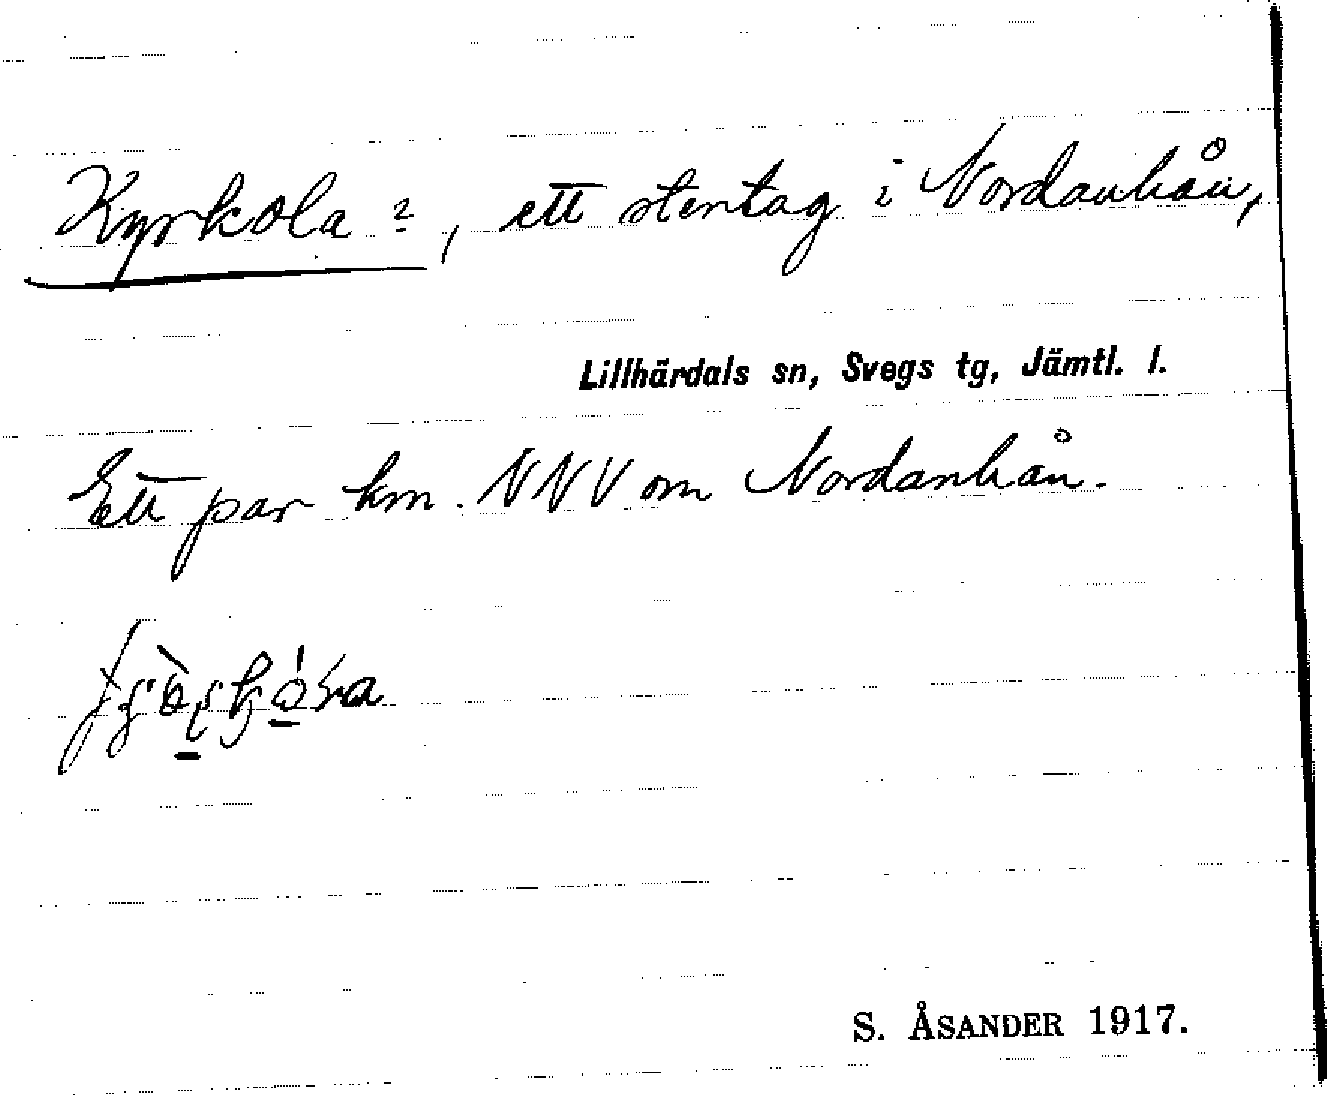 Kyrkola ?, ett stentag i Nordanhån,
Lillhärdals sn, Svegs tg, Jämtl. l.
Ett par km. NNV om Nordanhån.
S. ÅSANDER 1917.